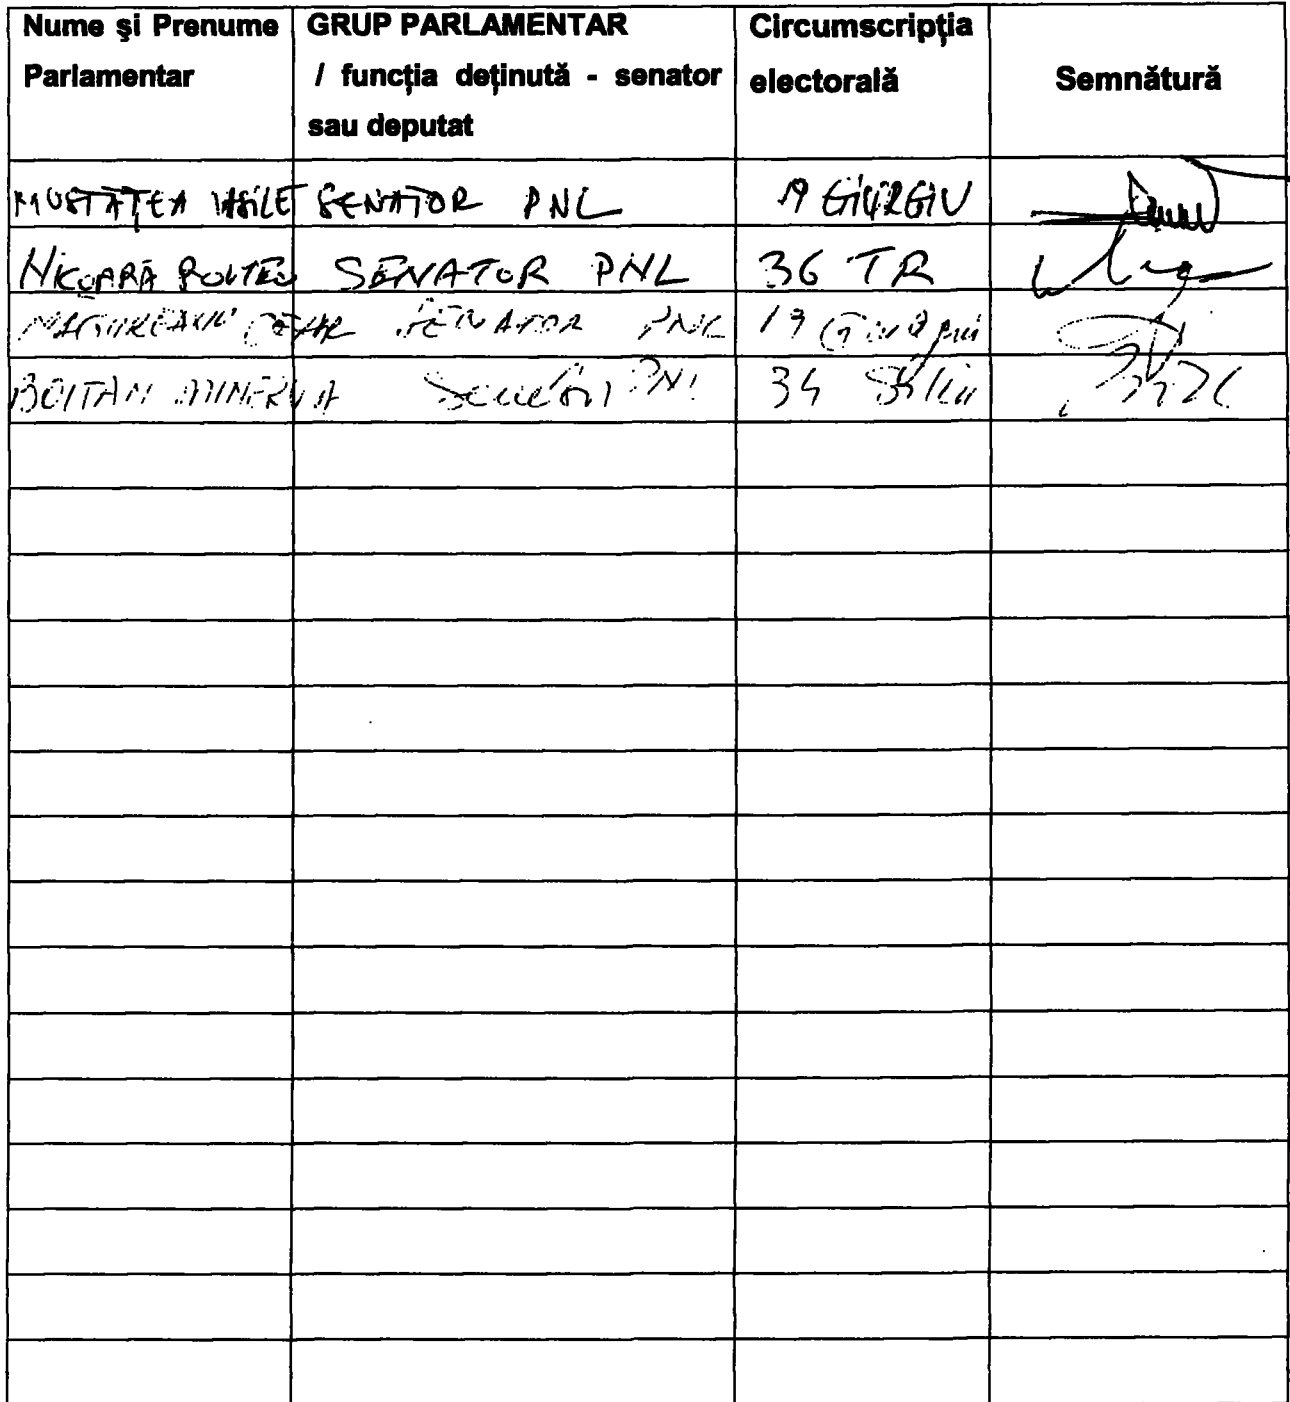 Nume şi Prenume Parlamentar | GRUP PARLAMENTAR / funcţia deţinută - senator sau deputat | Circumscripţia electorală | Semnătură
MUSTĂŢEA VASILE SENATOR PNL 19 GIURGIU
NICOARĂ SENATOR PNL 36 TR
CEZAR SENATOR PNL 19
BOITAN MINERVA PNL 34